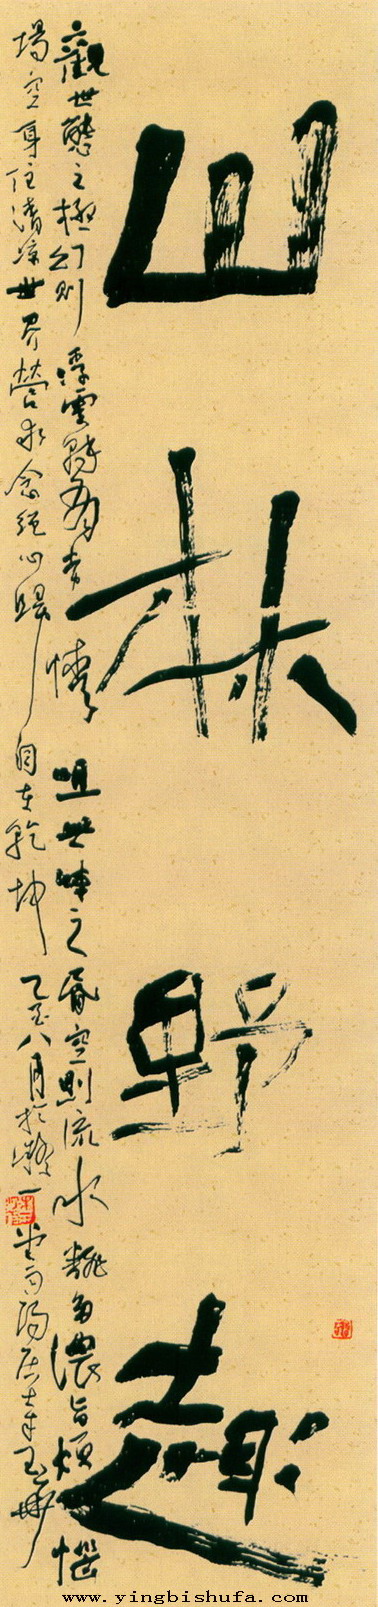 山林野趣
觀世態之極幻則浮雲轉有常情咀世味之昏空則流水翻多濃旨煩惱
場空身住清涼世界營求念絕心歸自在乾坤
乙亥八月於
www.yingbishufa.com